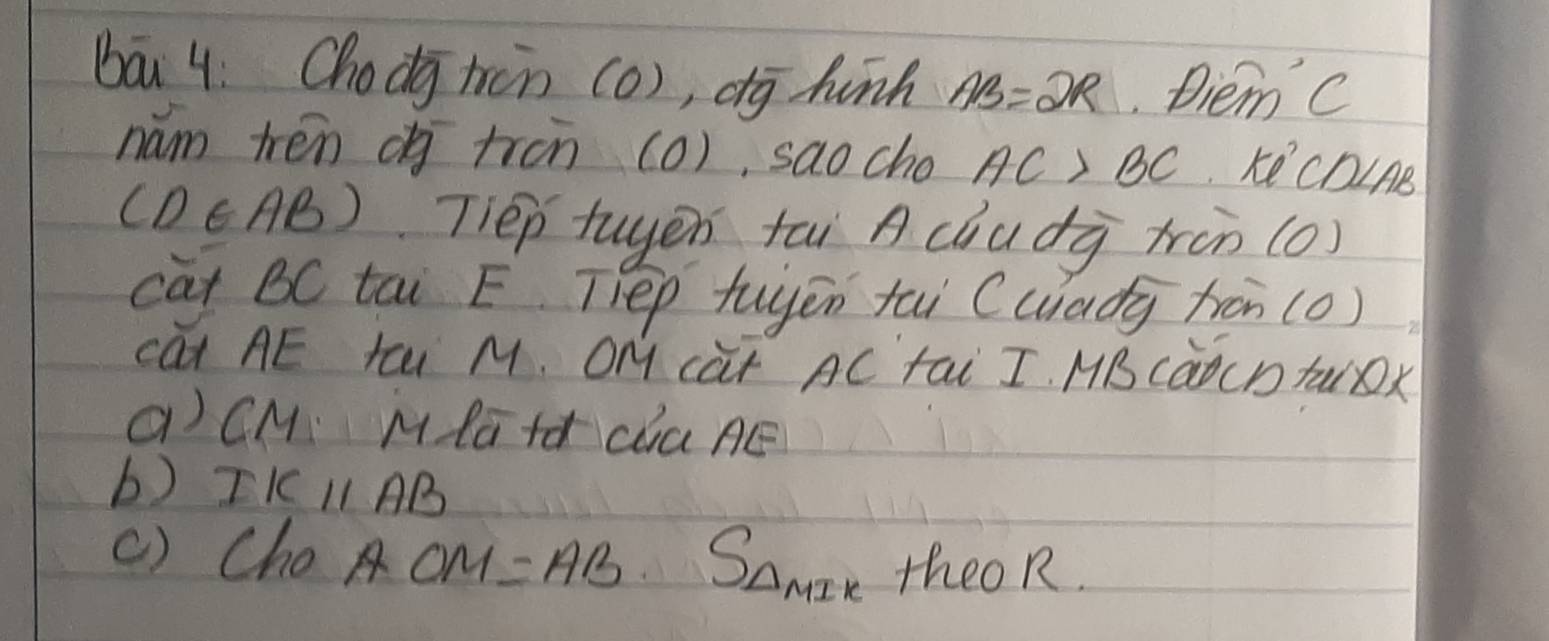 Bài 4: Cho đg tròn (O), đg kính AB=2R. Điểm C
nằm trên đg tròn (O), sao cho AC > BC. Kẻ CD⊥AB
(D ∈ AB). Tiếp tuyến tại A của đg tròn (O)
cắt BC tại E. Tiếp tuyến tại C của đg tròn (O)
cắt AE tại M. OM cắt AC tại I. MB cắt CD tại K
a) CM: M là tđ của AE
b) IK // AB
c) Cho OM = AB. SΔMIK theo R.